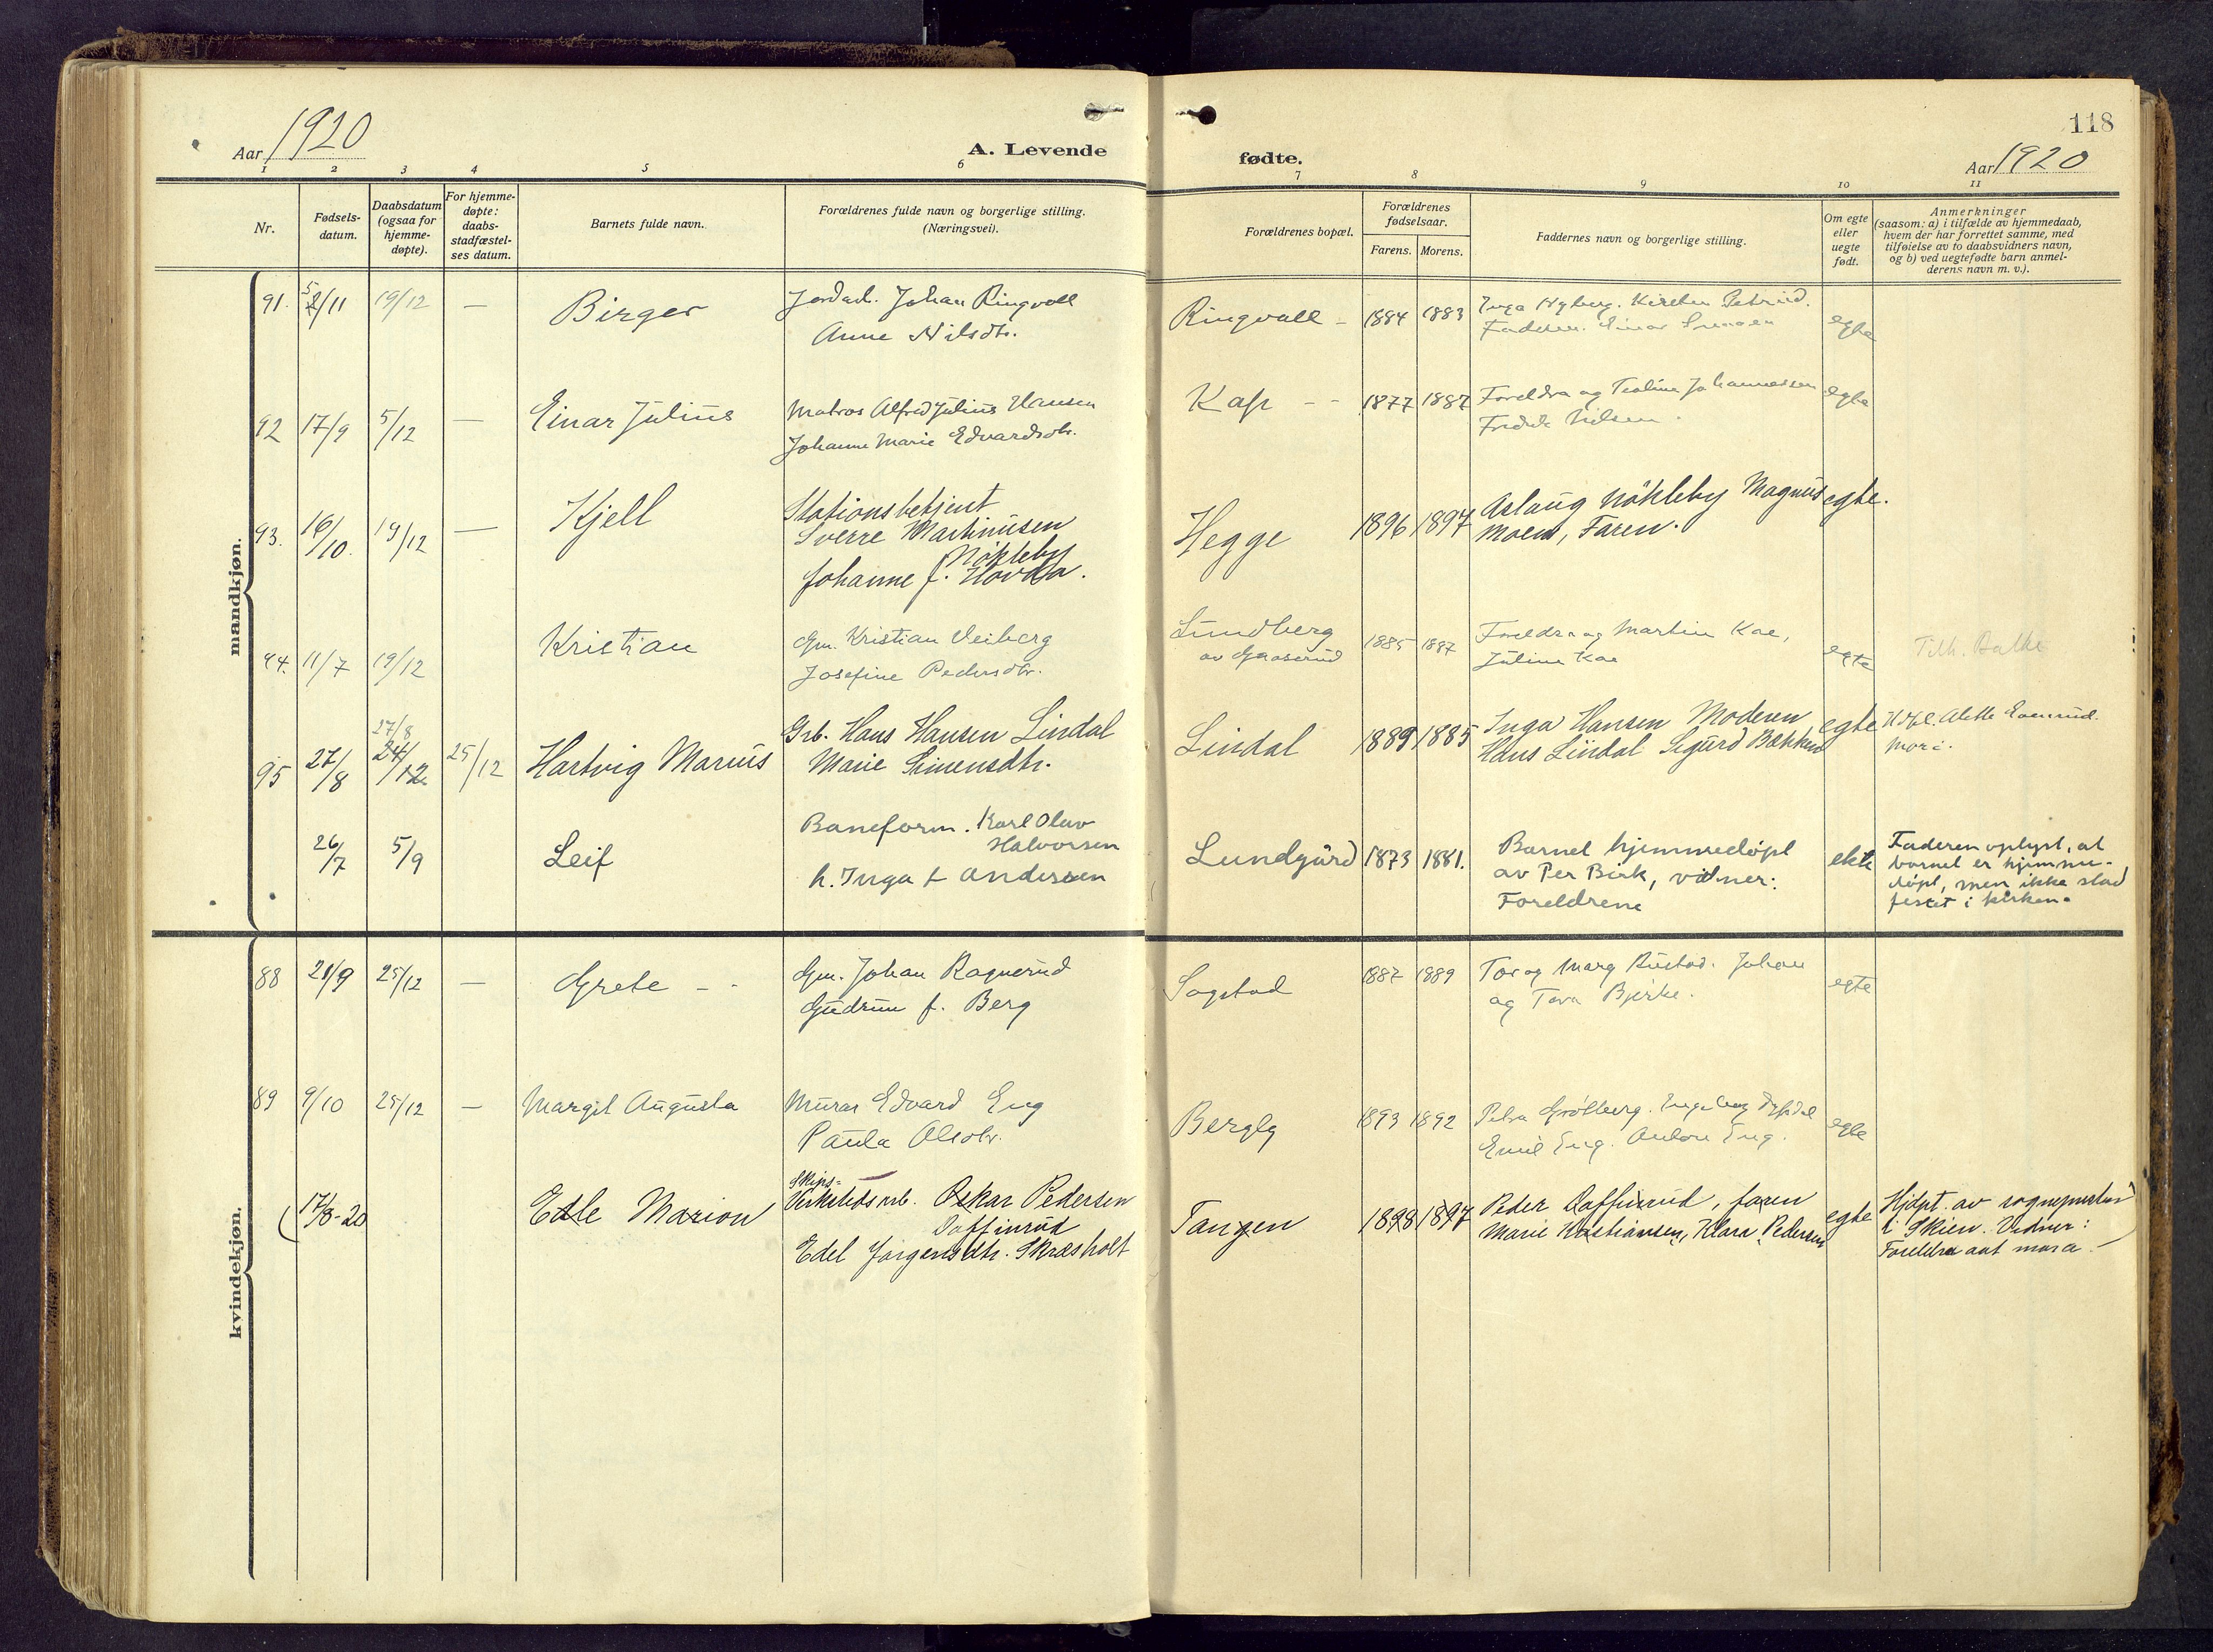 118
Aar 1920
A. Levende
fødte.
Aar 1920
1 2 3 4 5 6 7 8 9 10 11
Nr.
Fødsels-
datum.
Daabsdatum
(ogsaa for
hjemme-
døpte).
For hjemme-
døpte:
daabs-
stadfæstel-
ses datum.
Barnets fulde navn.
Forældrenes fulde navn og borgerlige stilling.
(Næringsvei).
Forældrenes bopæl.
Forældrenes
fødselsaar.
Farens. Morens.
Faddernes navn og borgerlige stilling.
Om egte
eller
uegte
født.
Anmerkninger
(saasom: a) i tilfælde av hjemmedaab,
hvem der har forrettet samme, med
tilføielse av to daabsvidners navn,
og b) ved uegtefødte barn anmel-
derens navn m. v.).
mandkjøn.
91. 5/11 19/12 — Birger
Johan Ringvoll
Anne Nilsdtr.
Ringvoll - 1884 1883
Inga Nyberg.
Faderen. Einar
egte
92 17/9 5/12 — Einar Julius
Matros Alfred Julius Hansen
Johanne Marie Edvardsdtr.
Kap - - 1877 1887
Foreldra og Teoline Johannessen
Fredrik Nilsen.
egte
93. 16/10. 19/12 — Kjell
Stationsbetjent
Sverre Martinusen
Nökleby
Johanne f. Hovda.
Hegge 1896 1897
Aslaug Nökleby Magnus
Moen, Faren.
egte.
94. 11/7 19/12 Kristian
Gm. Kristian Veiberg
Josefine Pedersdtr.
Lundberg
av Gaaserud
1885 1887
Foreldra og Martin Kae,
Juline Kae
egte
Tilh. Balke
27/8
95 27/8 24/12 25/12 Hartvig Marius
Grb. Hans Hansen Lindal
Marie Simensdtr.
Lindal 1889 1885
Inga Hansen Moderen
Hans Lindal Sigurd Bakken
egte
Alette
Mor i.
26/7 5/9 Leif
Baneform. Karl Olav
Halvorsen
h. Inga f. Andersen
Lundgård 1873 1881.
Barnet hjemmedöpt
av Per Birk, vidner:
Foreldrene
ekte
Faderen oplyst, at
barnet er hjemme-
döpt, men ikke stad
festet i kirken.
kvindekjøn.
88 21/9 25/12 — Grete - -
Gm. Johan Rognerud
Gudrun f. Berg
Sogstad 1887 1889
Tor og Marg Rustad. Johan
og Tora Bjerke.
egte
89 9/10 25/12 — Margit Augusta
Murar Edvard Eng
Paula Olsdtr.
Bergly 1893 1892
Petra Grölberg. Ingeborg
Emil Eng. Anton Eng.
egte
17/8-20 Edle Marion
Skips-
Verkstedsarb. Oskar Pedersen
Daffinrud
Edel Jørgensdtr. Skræsholt
Tangen 1898 1897
Peder Daffinrud, faren
Marie Kristiansen, Klara Pedersen
egte
Hjdøpt. av sogneprесten
i Skien. Vidner:
Foreldra aat mora. -